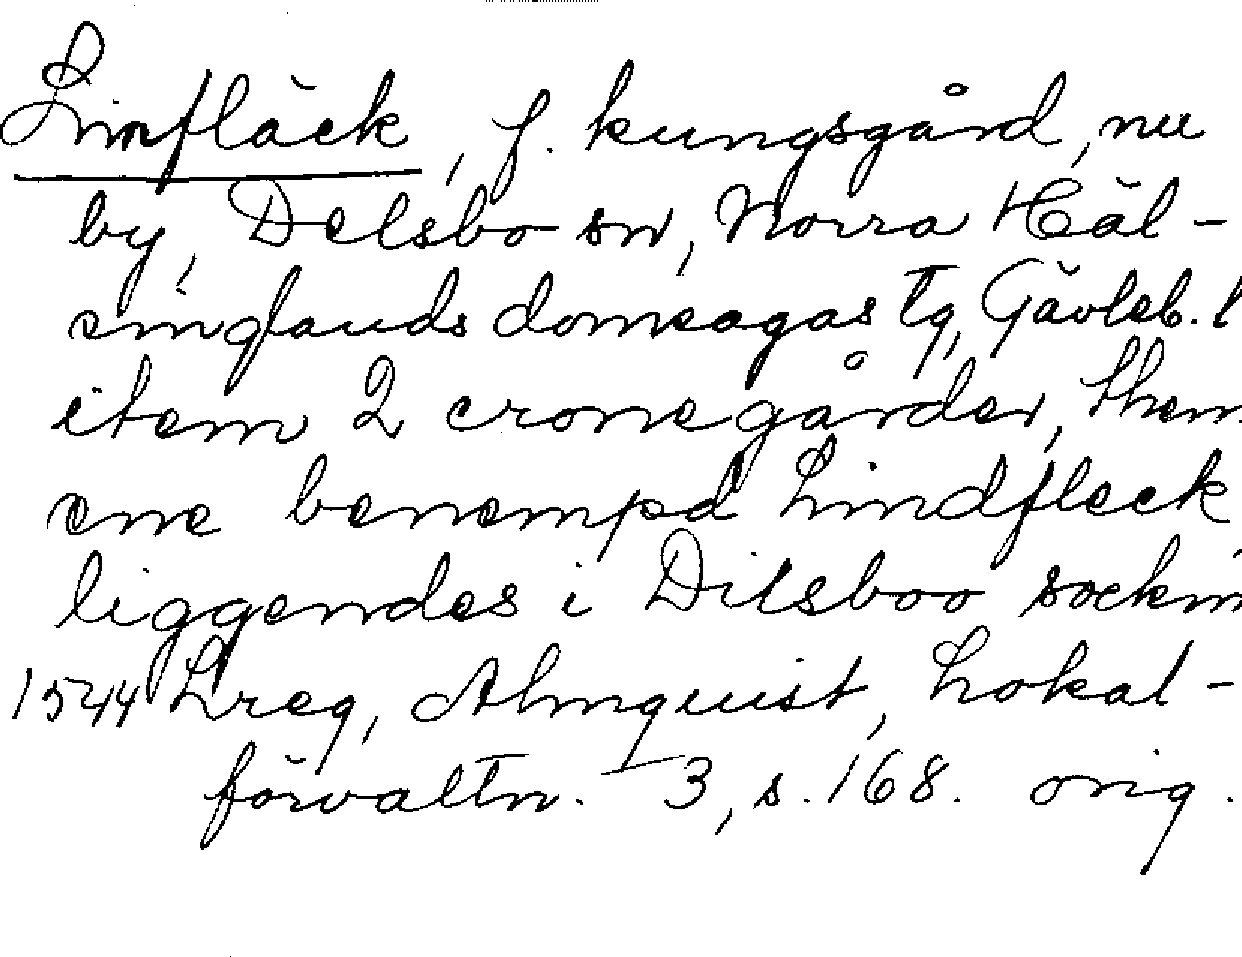 Limfläck, f. kungsgård, nu
by, Delsbo sn, Norra Häl-
singlands domsagas tg, Gävleb. l
item 2 cronegårder, them
ene benempd Lindfleck
liggendes i Dilsboo sockin
1544 Lreg, Almquist, Lokal-
förvaltn. 3, s. 168. orig.